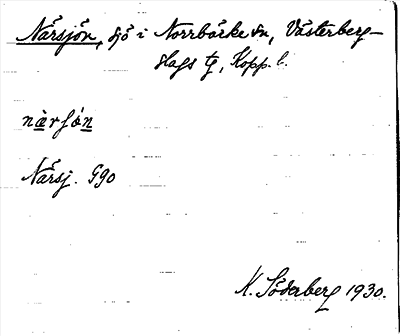 Närsjön, sjö i Norrbärke sn, Västerberg-
slags tg, Kopp. l.
närʃön
Närsj. G90
K. Söderberg 1930.